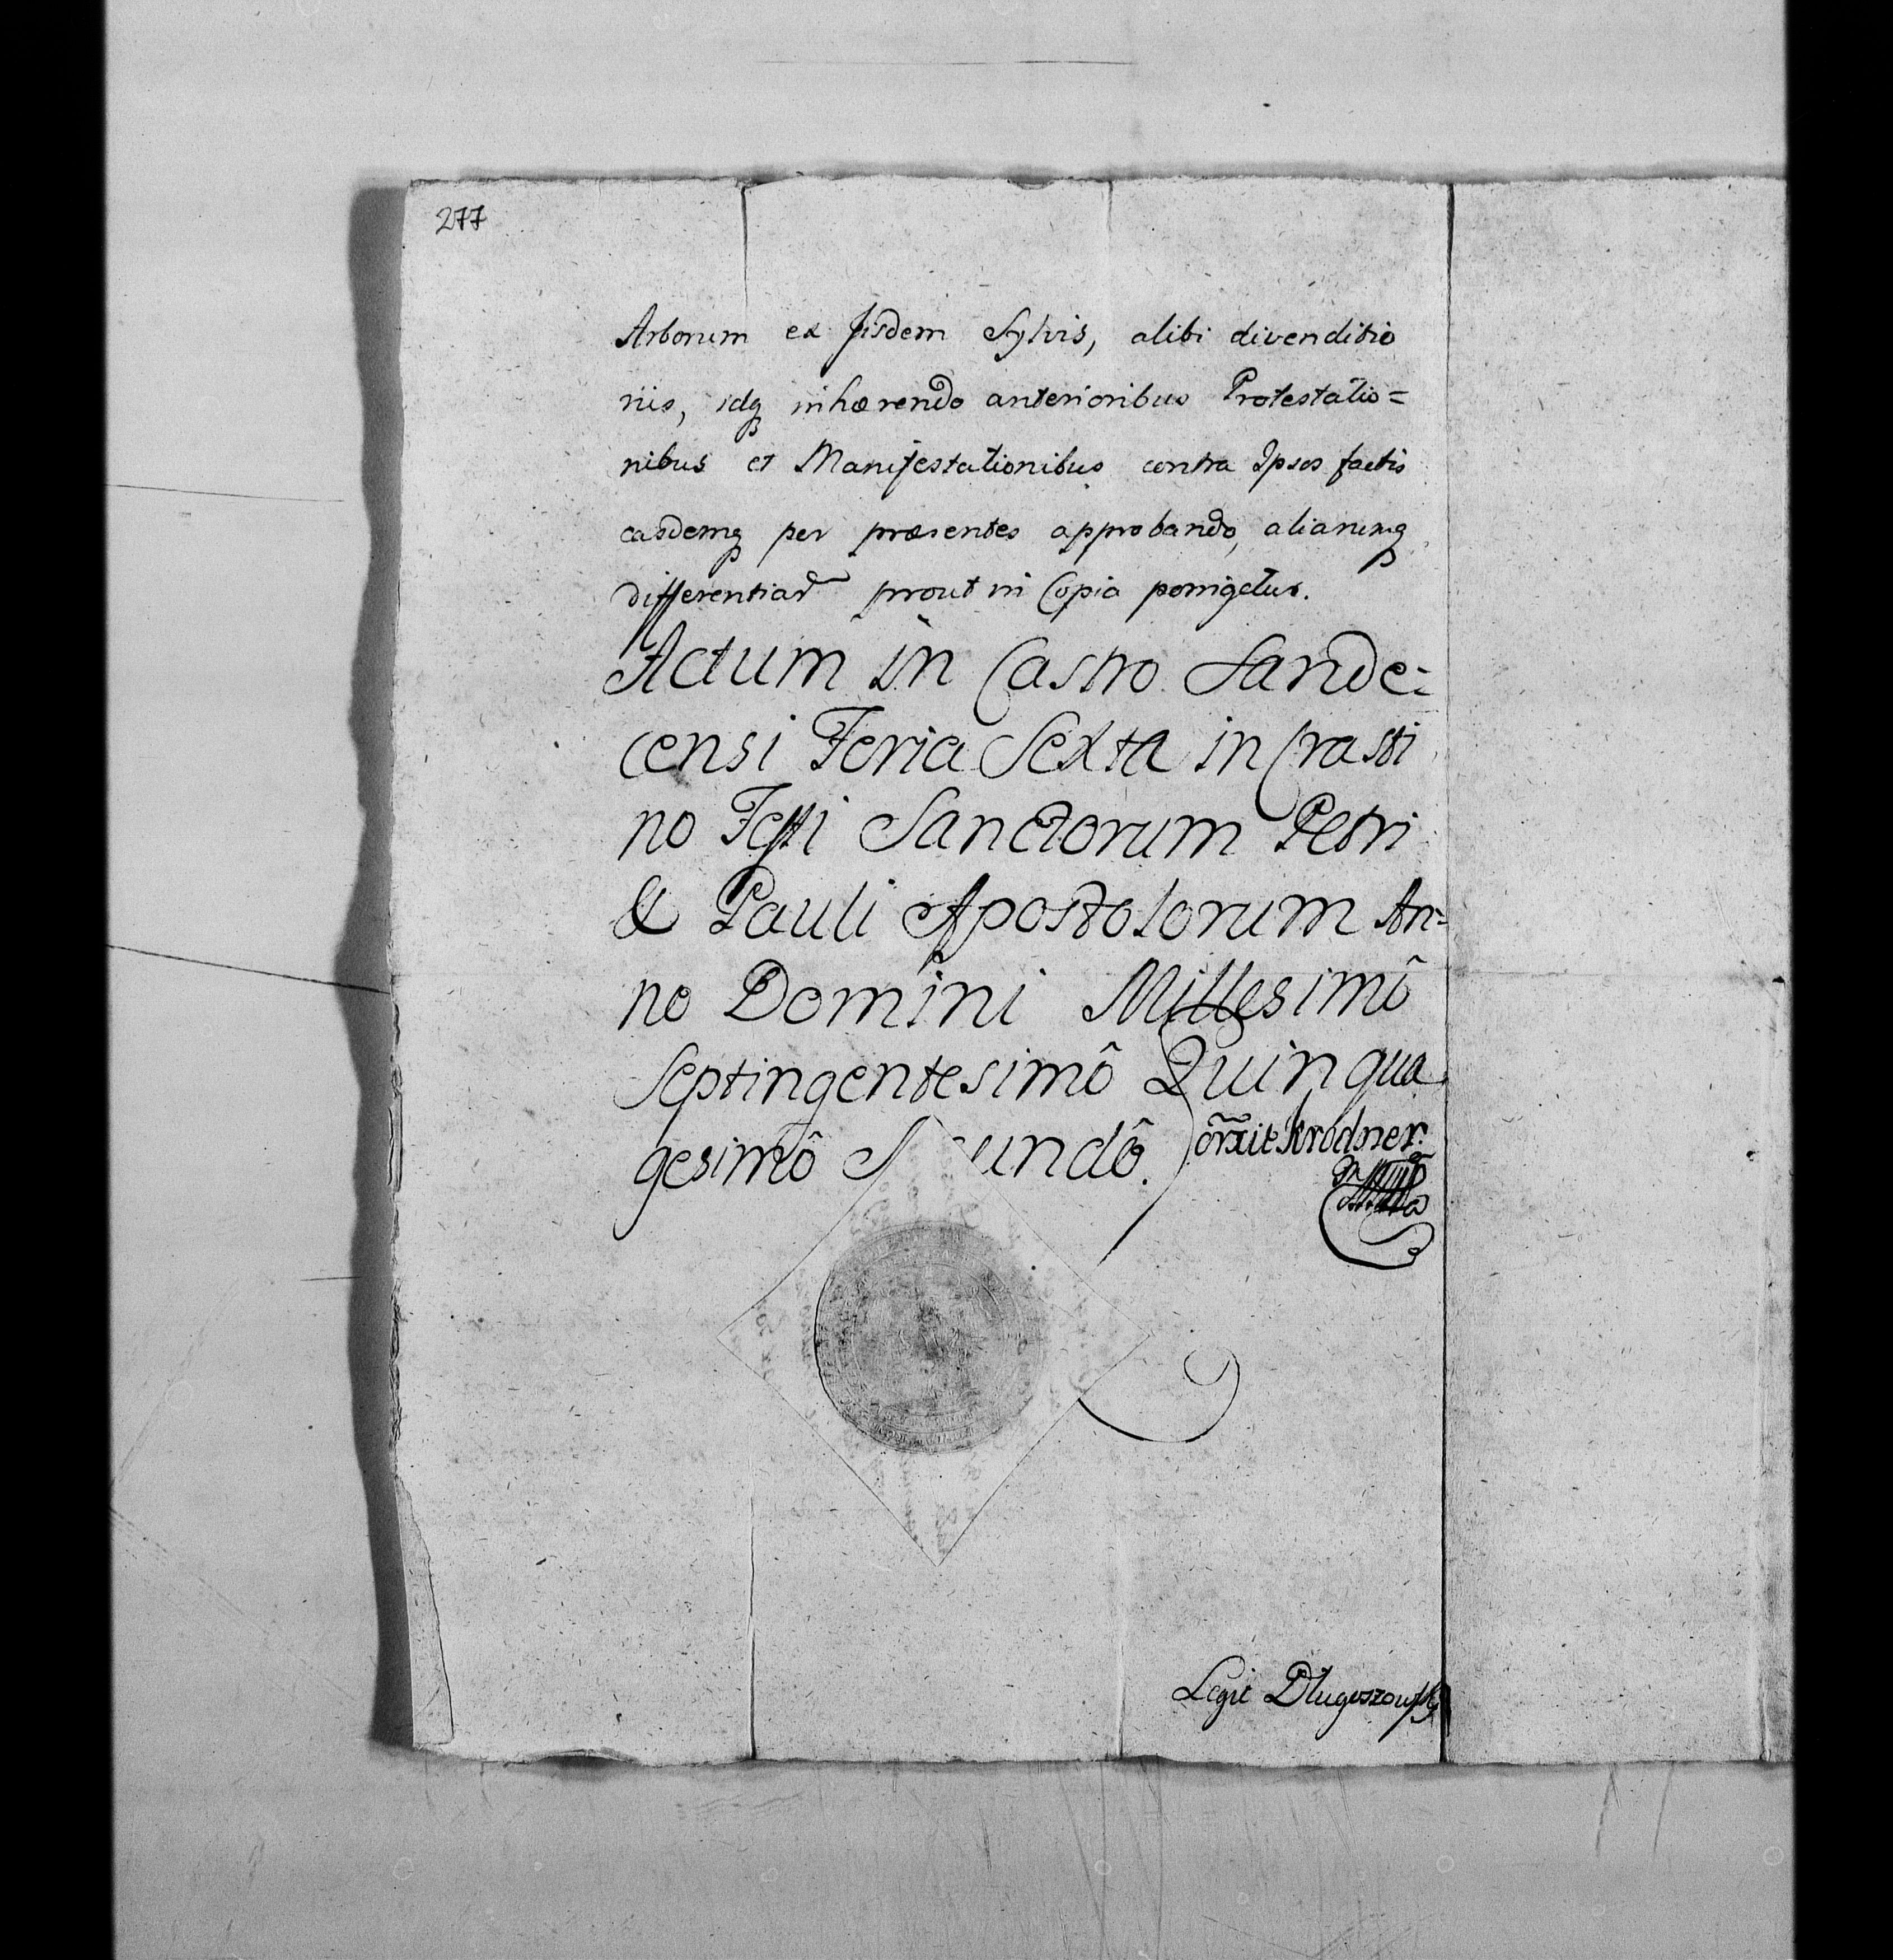 277
Arborum ex Iisdem Sylvis, alibi divenditio
nis, idq inhærendo anterioribus Protestatio=
nibus et Manifestationibus contra Ipsos factis
easdemq per præsentes approbando, aliarumq
differentiar prout in Copia porrigetur.
Actum in Castro Sande=
censi Feria Sexta in Crasti
no Festi Sanctorum Petri
& Pauli Apostolorum An=
no Domini Millesimô
Septingentesimô Quinqua
gesimô S cundô. Krodner
Legit Długoszowsky